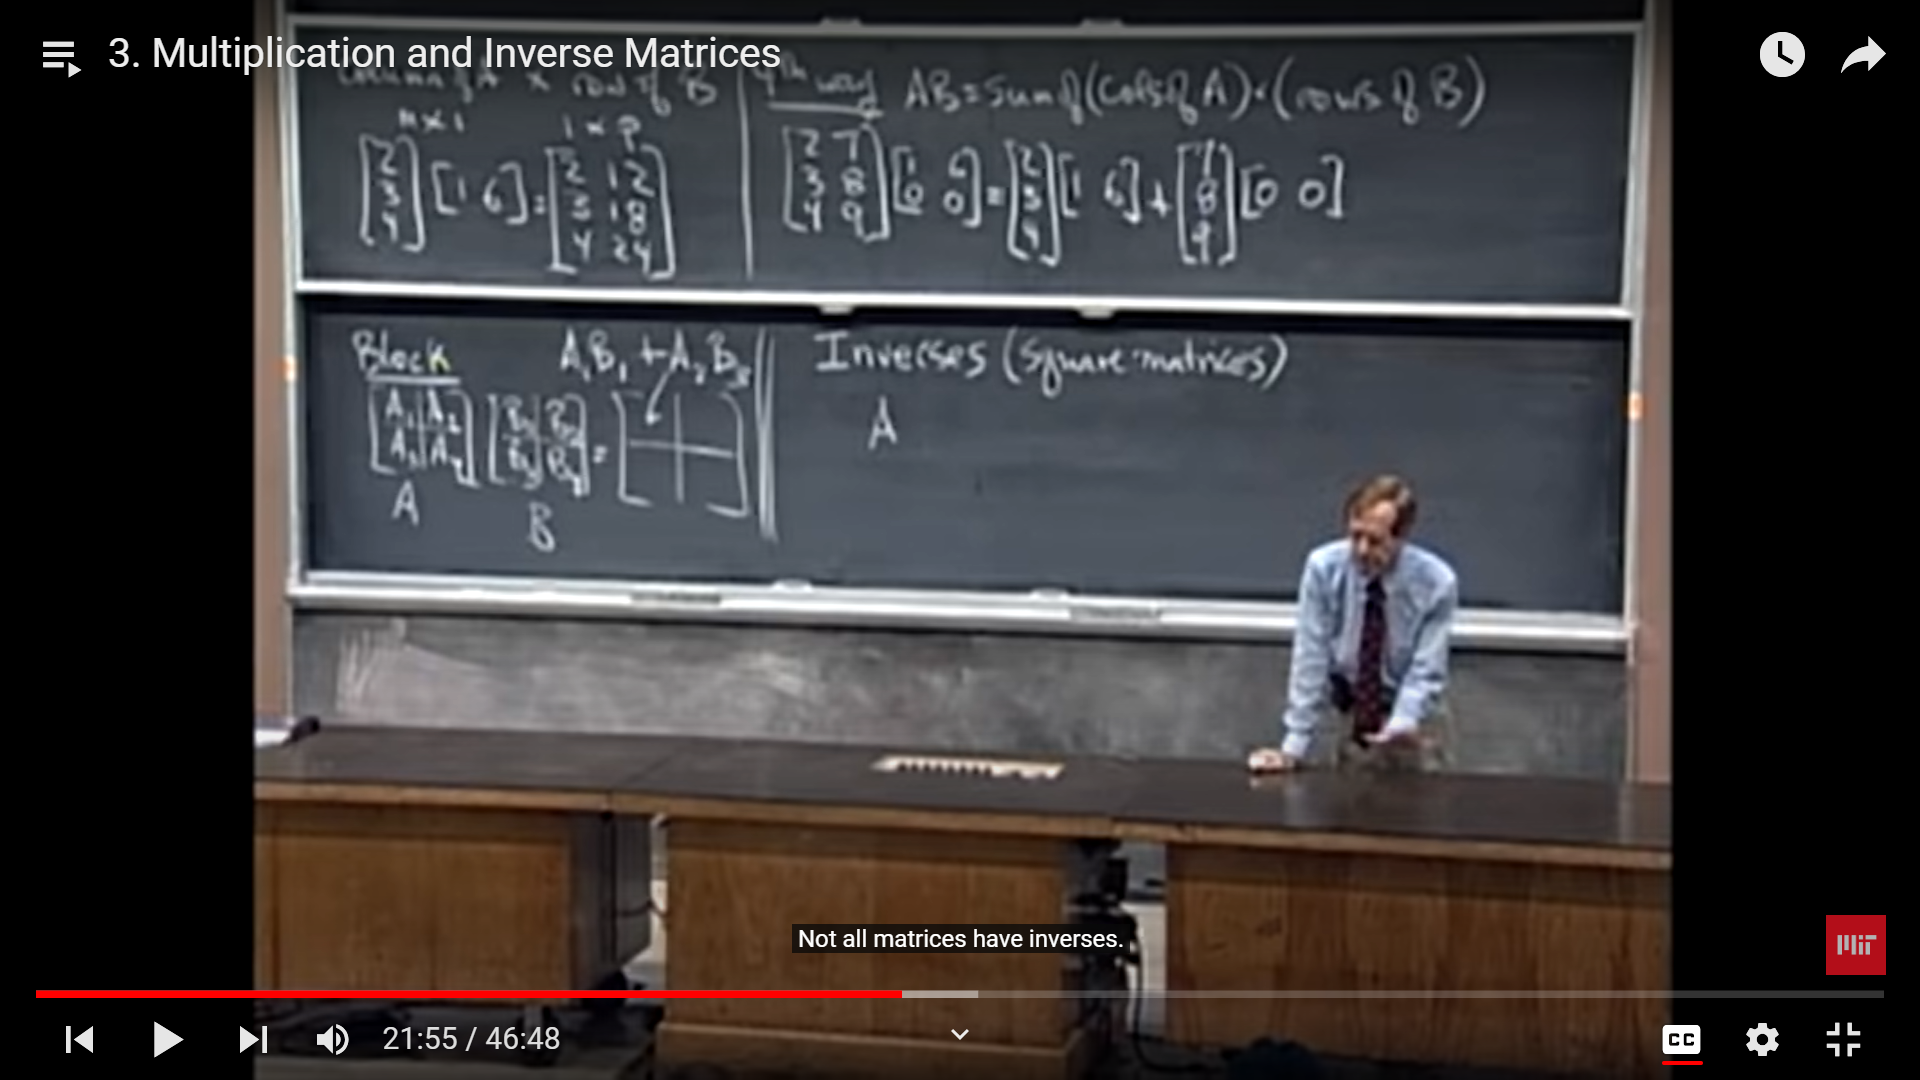 3. Multiplication and Inverse Matrices
column of A × row of B
m×1 1×p
[2 3 4] [1 6] = [2 12 3 18 4 24]
4th way AB = Sum of (Cols of A)×(rows of B)
[2 7 3 8 4 9] [1 6 0 0] = [2 3 4] [1 6] + [7 8 9] [0 0]
Block A₁B₁ + A₂B₃
[A₁ A₂ A₃ A₄] [B₁ B₂ B₃ B₄] =
A B
Inverses (square matrices)
A
Not all matrices have inverses.
MIT
21:55 / 46:48
CC